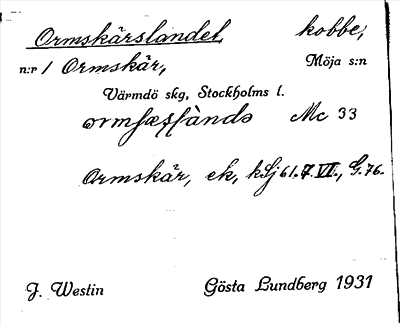 Ormskärslandet, kobbe,
n:r 1 Ormskär, Möja s:n
Värmdö skg, Stockholms l.
Mc 33
Ormskär, ek, kSj 61.7.VII., G.76.
J. Westin Gösta Lundberg 1931